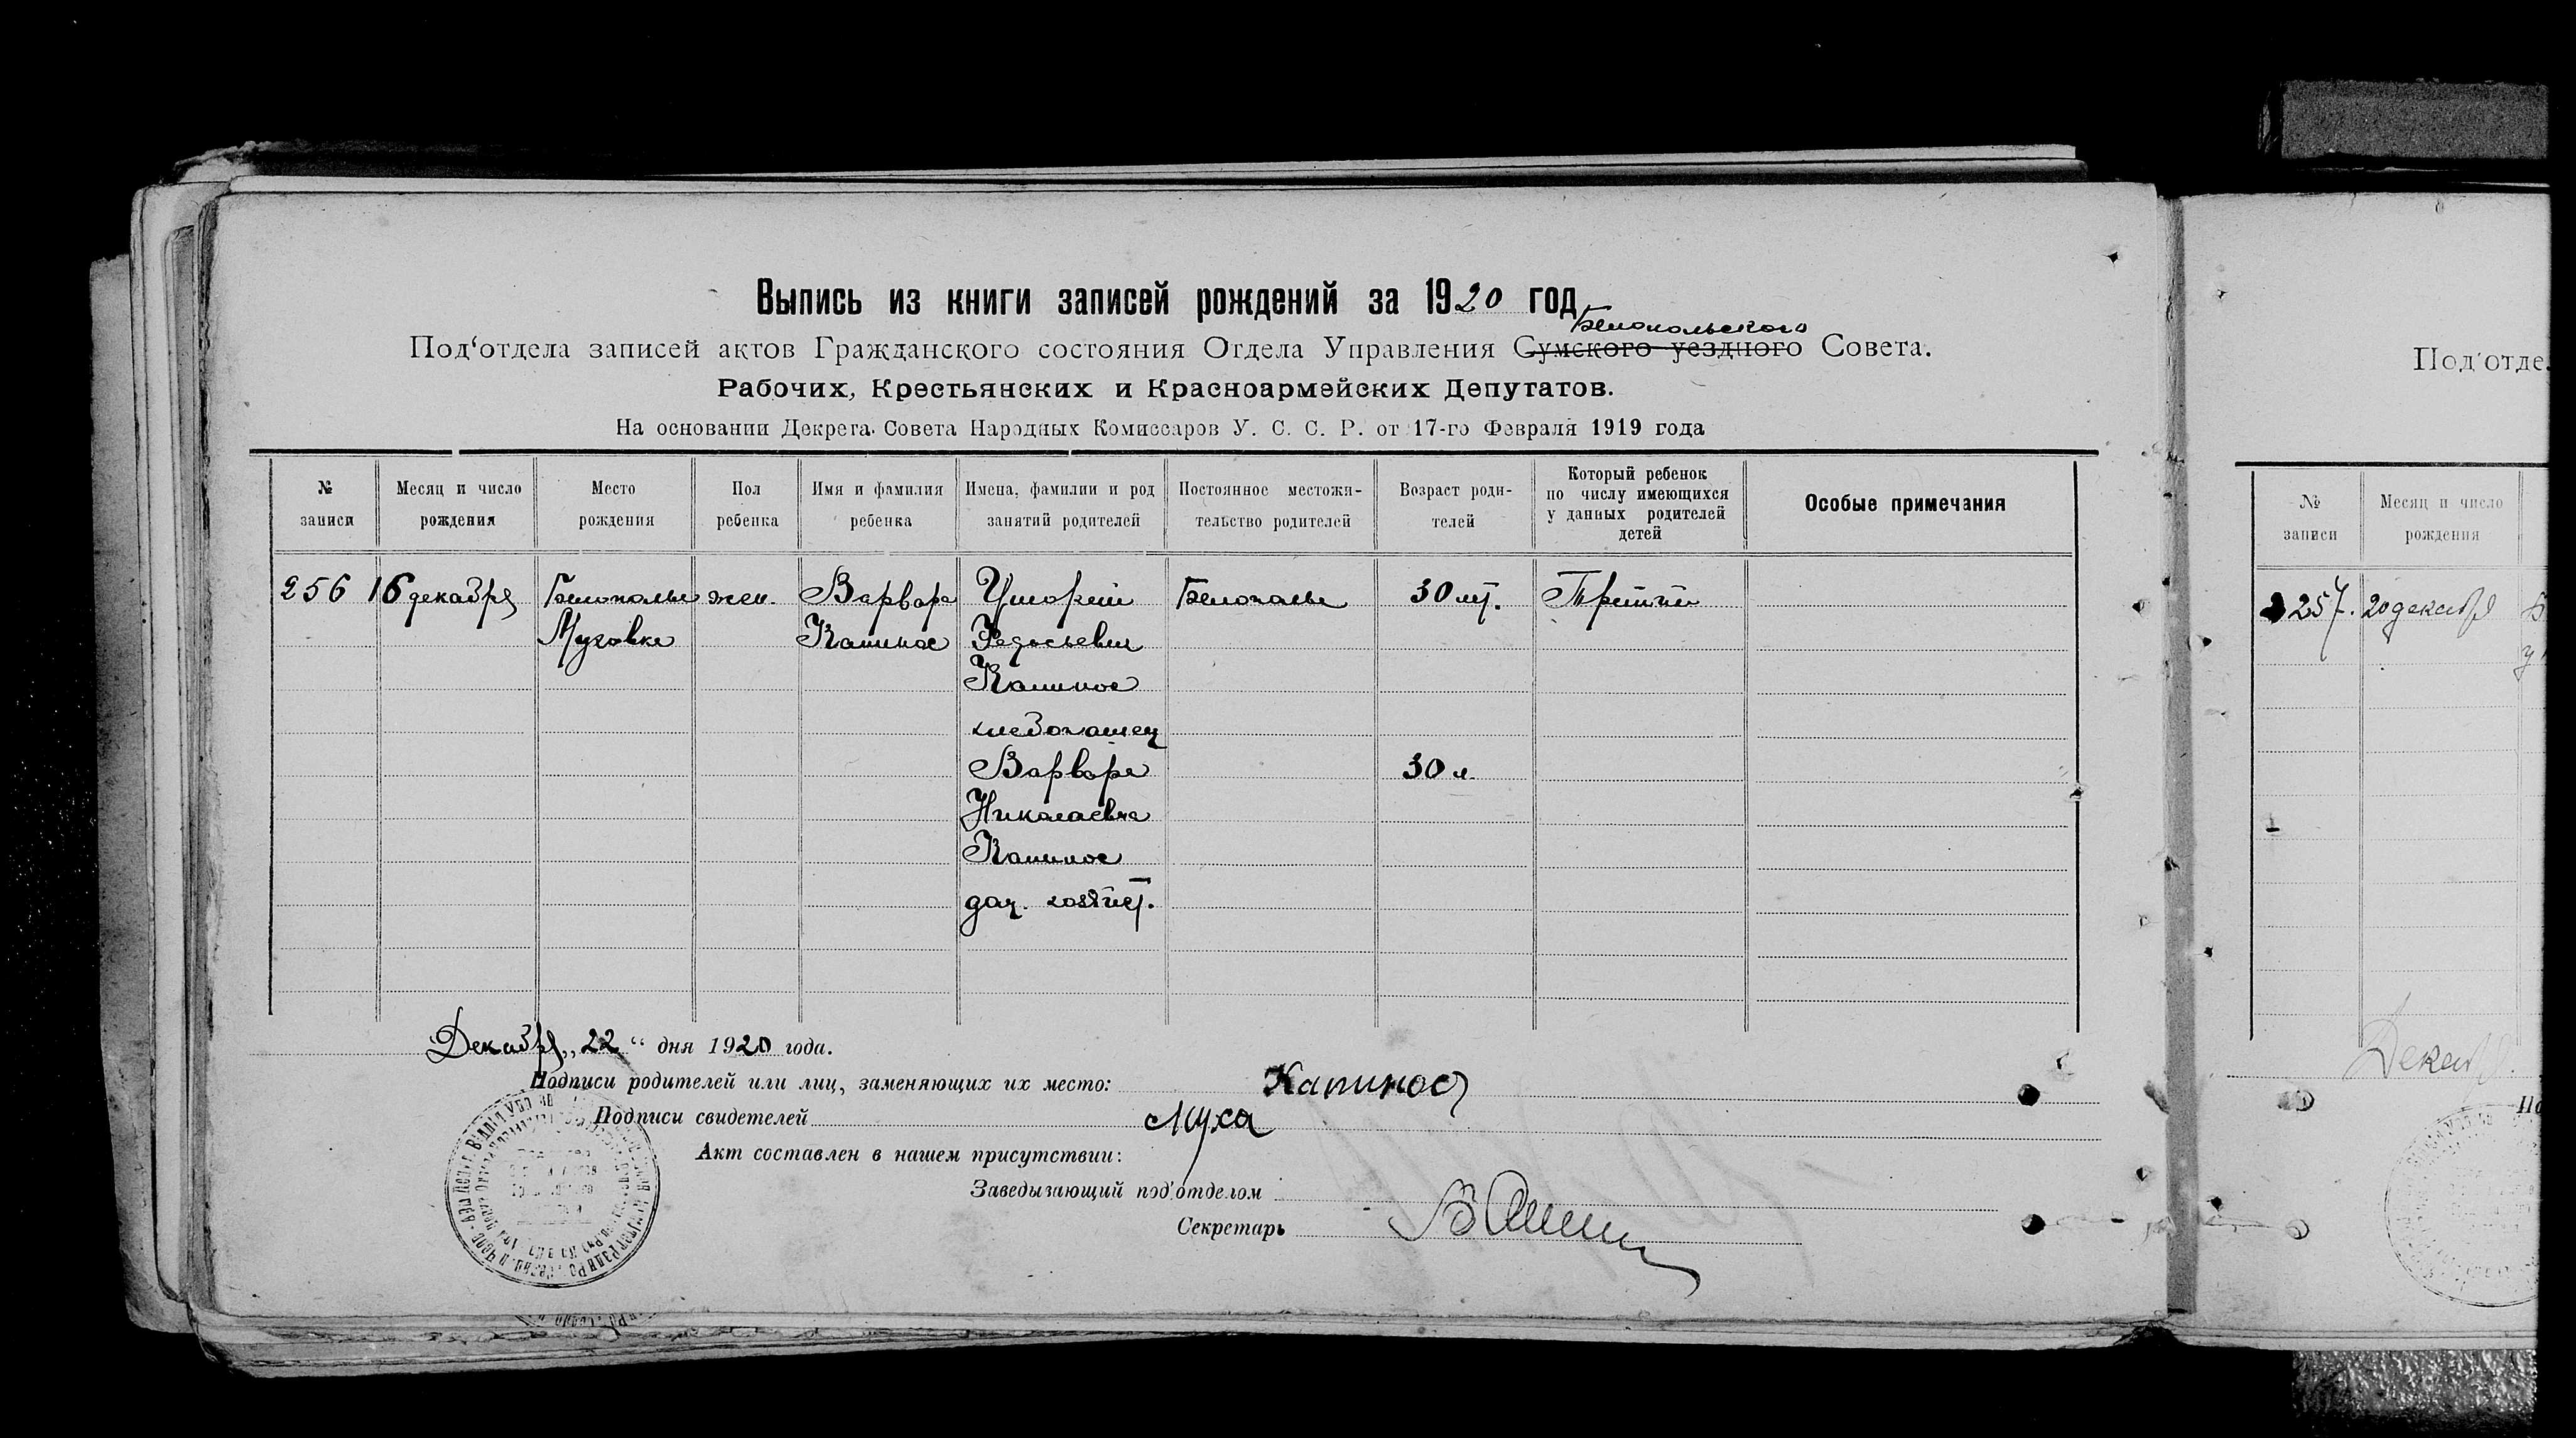 Выпись из книги записей рождений за 1920 год
Белопольского
Под'отдела записей актов Гражданского состояния Отдела Управления Сумского уездного Совета.
Рабочих, Крестьянских и Красноармейских Депутатов.
На основании Декрета Совета Народных Комиссаров У. С. С. Р. от 17-го Февраля 1919 года
№ записи
Месяц и число рождения
Место рождения
Пол ребенка
Имя и фамилия ребенка
Имена, фамилии и род занятий родителей
Постоянное местожительство родителей
Возраст родителей
Который ребенок по числу имеющихся у данных родителей детей
Особые примечания
256 16 декабря Белополье жен. Варвара Белополье 30 лет. Третий
Капинос Федосьевич
Капинос
хлебопашец
Варвара 30 л.
Николаевна
Капинос
Декабря „22“ дня 1920 года.
Подписи родителей или лиц, заменяющих их место: Капинос
Подписи свидетелей Муха
Акт составлен в нашем присутствии:
Заведывающий под'отделом
Секретарь
Под'отде
№ записи
Месяц и число рождения
257. 20 декабря
Декабр